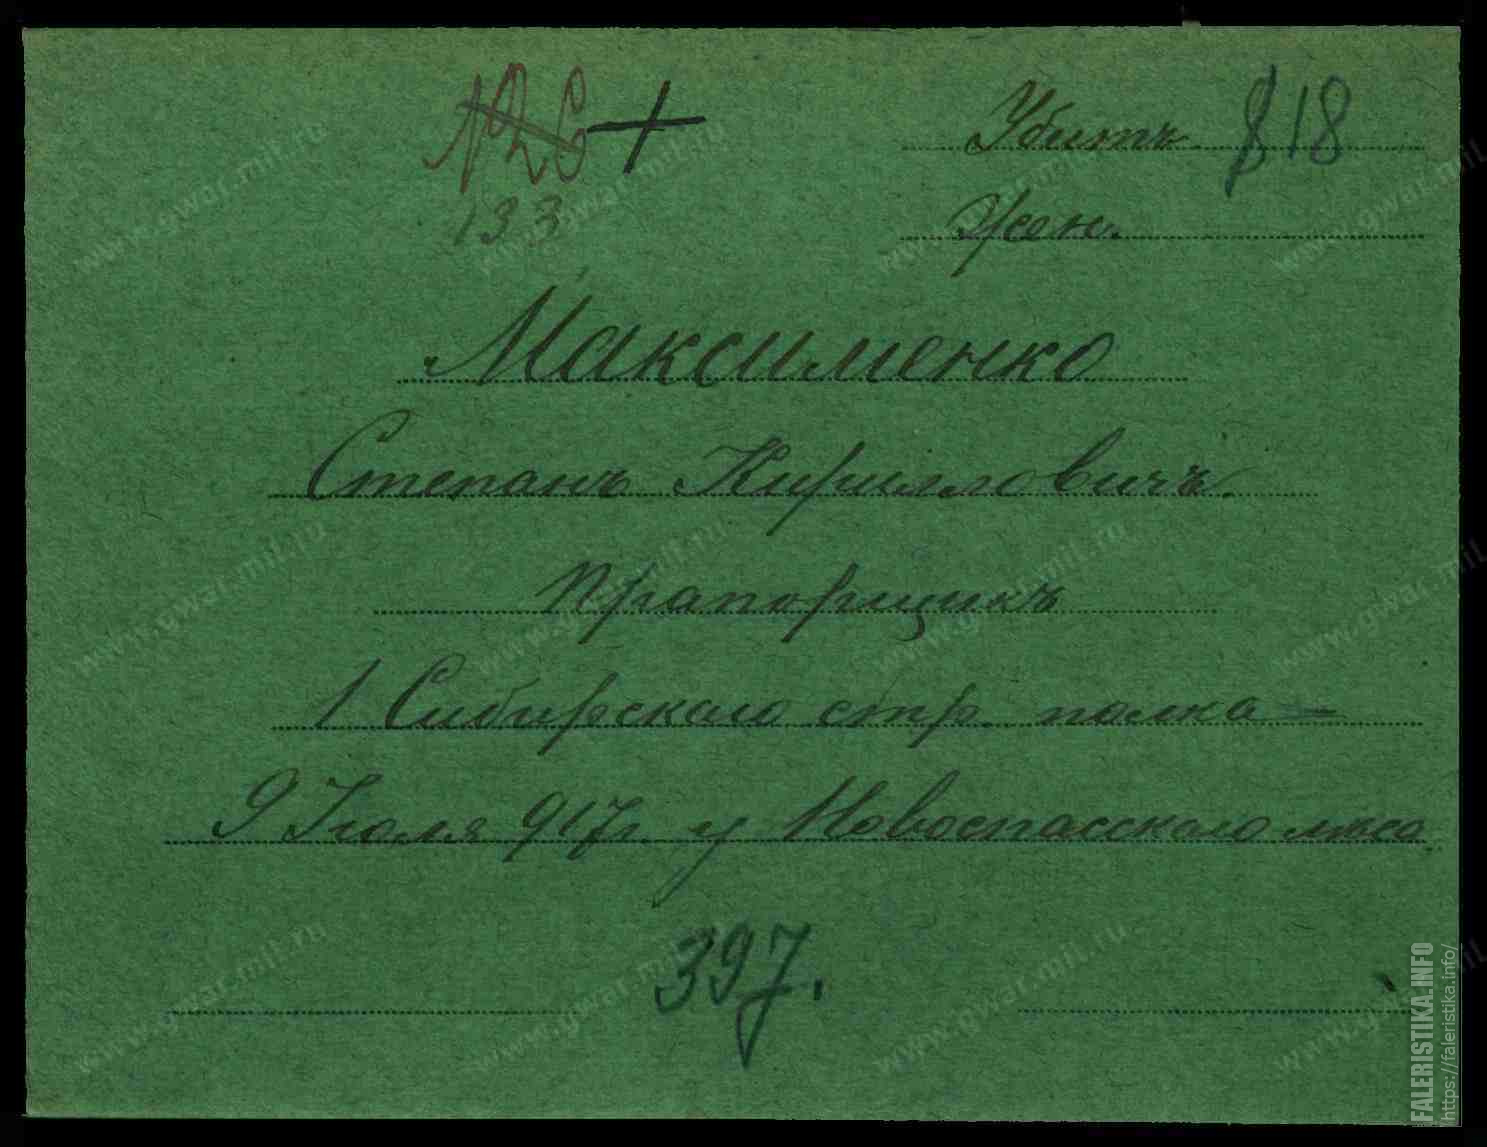 126 +
133
Убитъ 818
Жен.
Максименко
Степанъ Кирилловичъ.
Прапорщикъ
1 Сибирскаго стр. полка
9 Іюля 917г. у Новоспасскаго лѣса
397.
www.gwar.mil.ru
FALERISTIKA.INFO
https://faleristika.info/